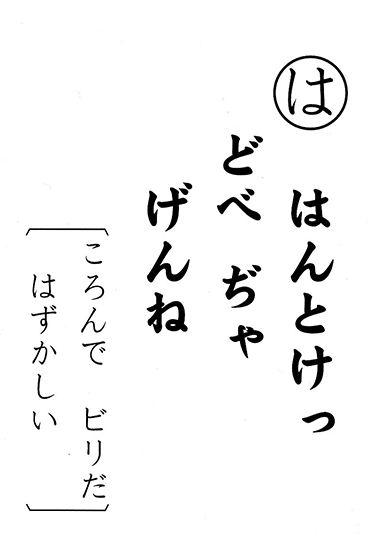 は
はんとけっ
どべ ぢゃ
げんね
ころんで ビリだ
はずかしい